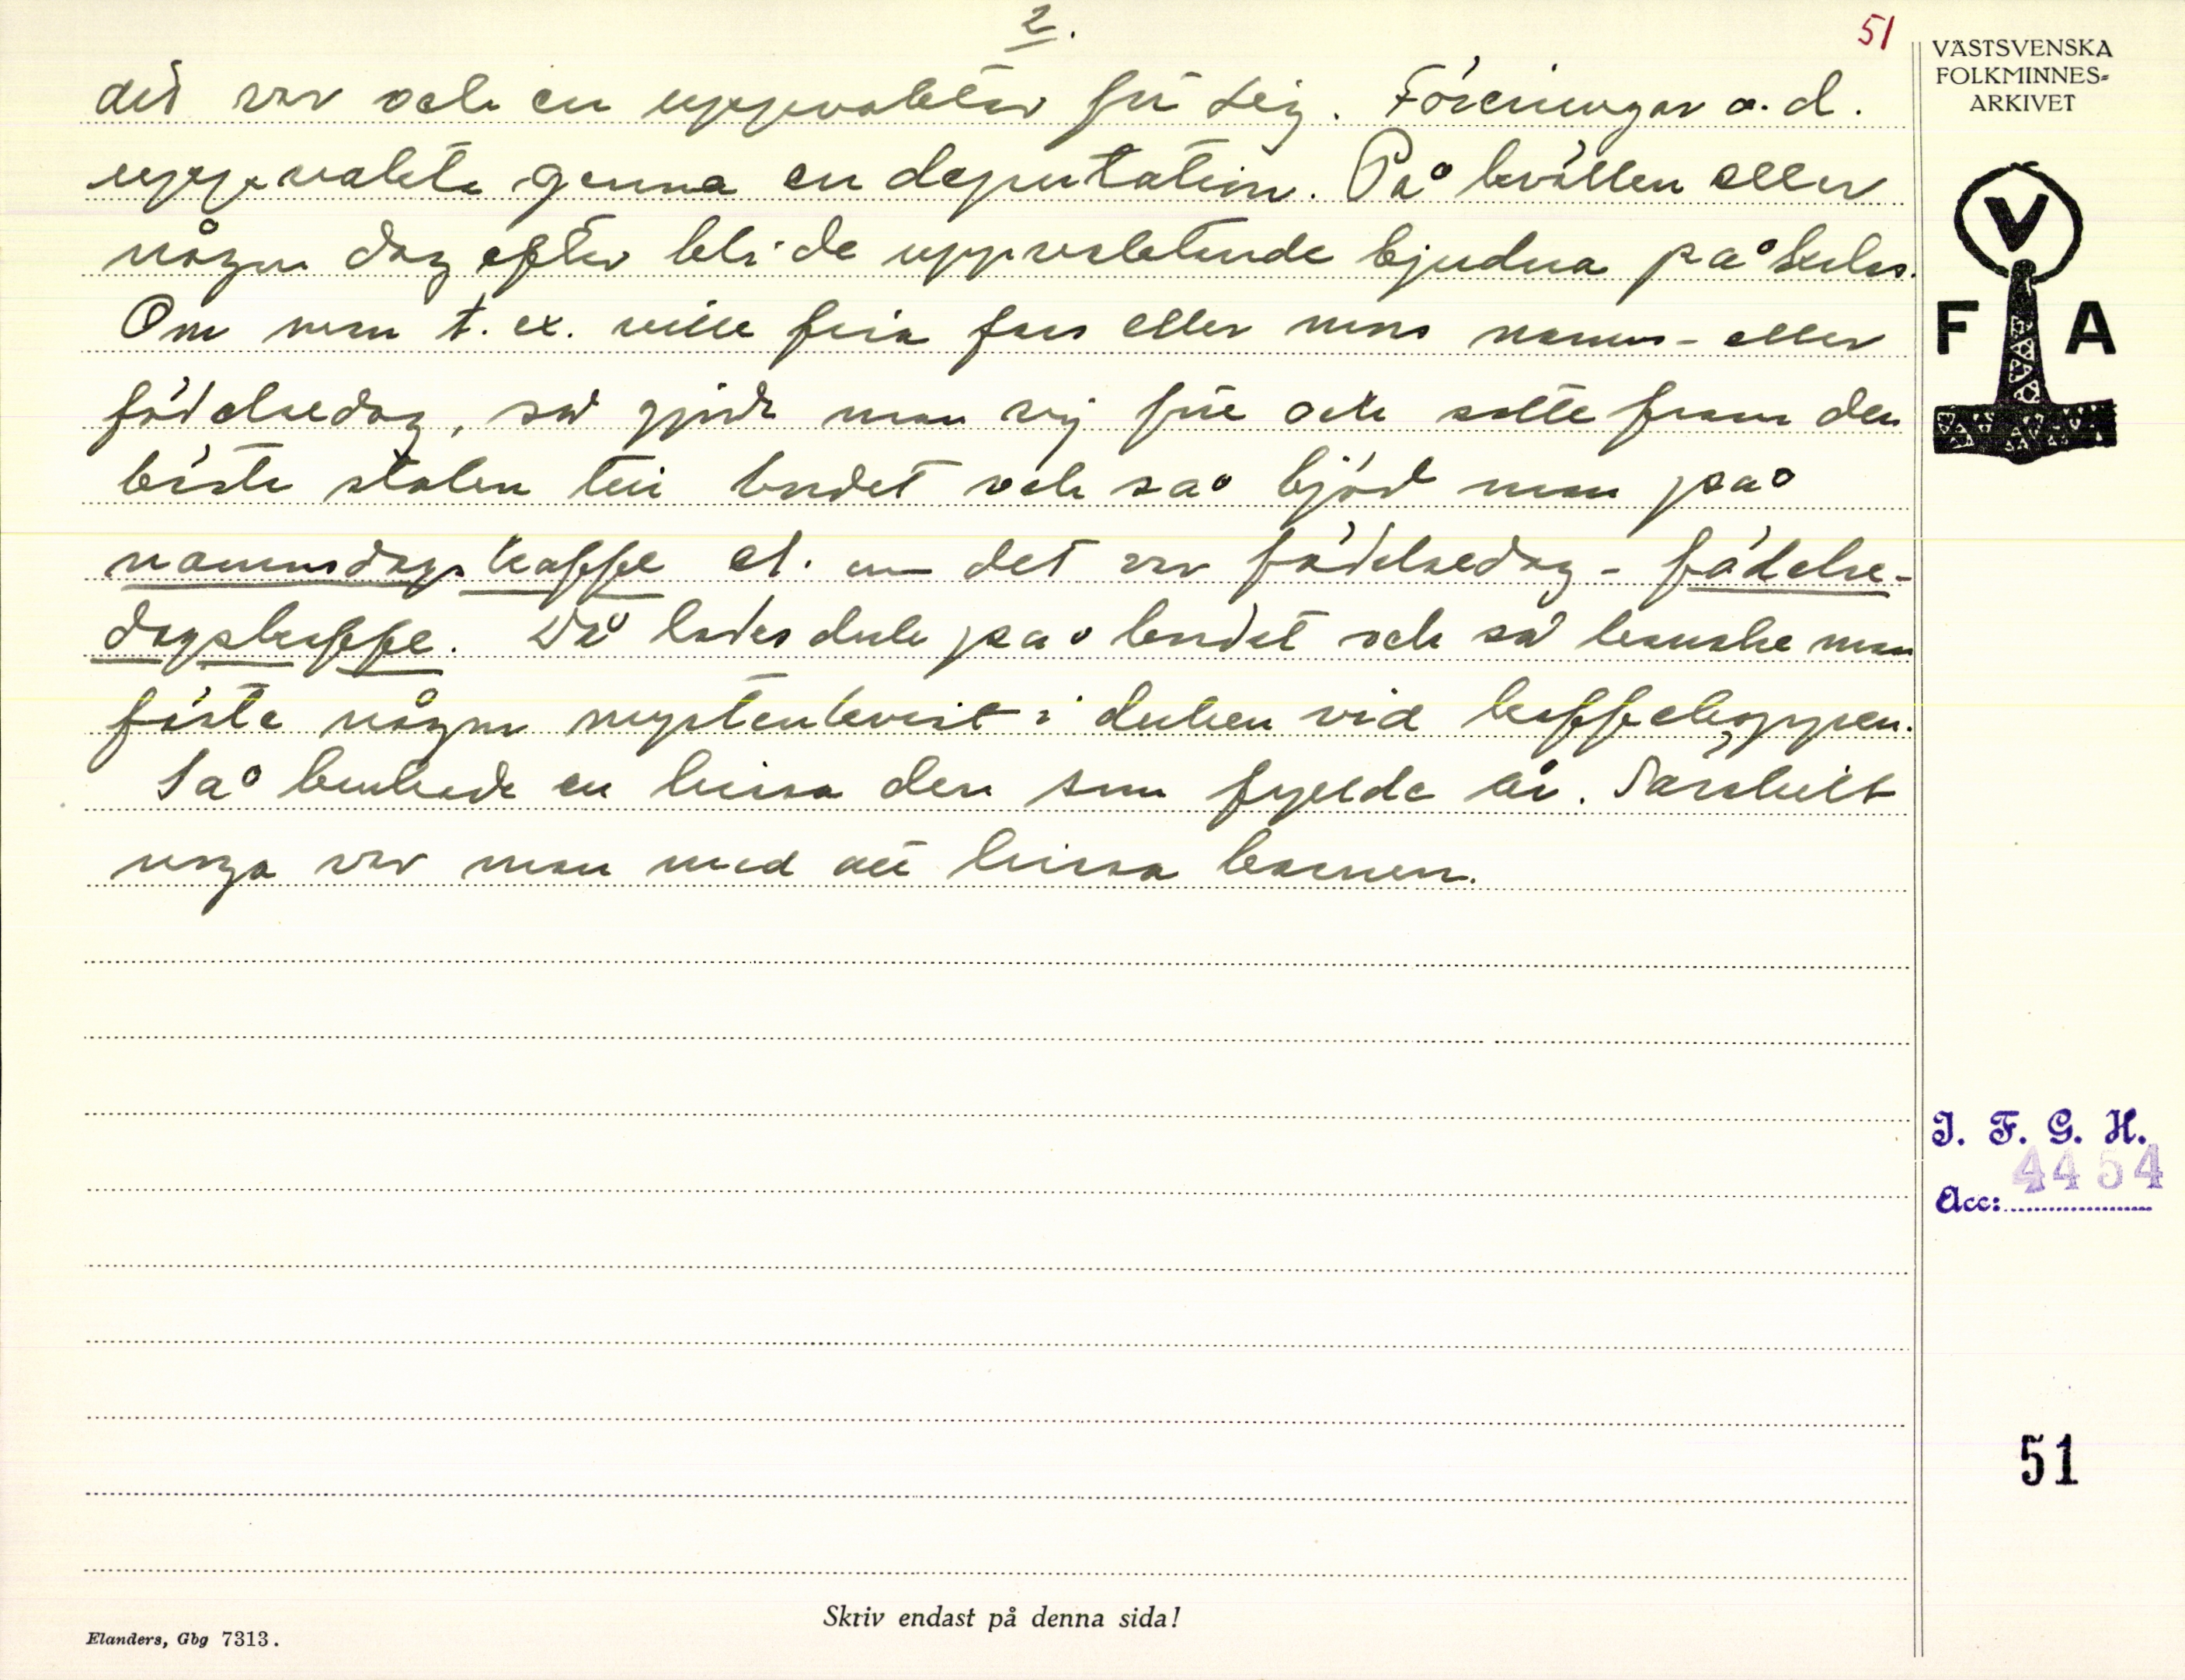 2.
51
det var och en uppvaktar för sig. Föreningar o. d.
uppvakta genna en deputation. På kvällen eller
någon dag efter bli de uppvaktande bjudna på kalas.
Om man t. ex. ville fira fars eller mors namns- eller
födelsedag, så gjorde man sig fin och satte fram den
bästa stolen till bordet och så bjöd man på
namnsdagskaffe el. om det var födelsedag - födelse-
dagskaffe. Då lades duk på bordet och så kanske man
fäste någon myrtenkvist i duken vid kaffekoppen.
Så brukade en hissa den som fyllde år. Särskilt
noga var man med att hissa barnen.
VÄSTSVENSKA
FOLKMINNES-
ARKIVET
V
F A
I. F. G. H.
4454
Acc:
51
Skriv endast på denna sida!
Elanders, Gbg 7313.